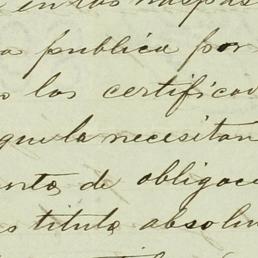 en las
a publica por
o las certificad
que la necesitan
ento de obligaci
s titulo absolu